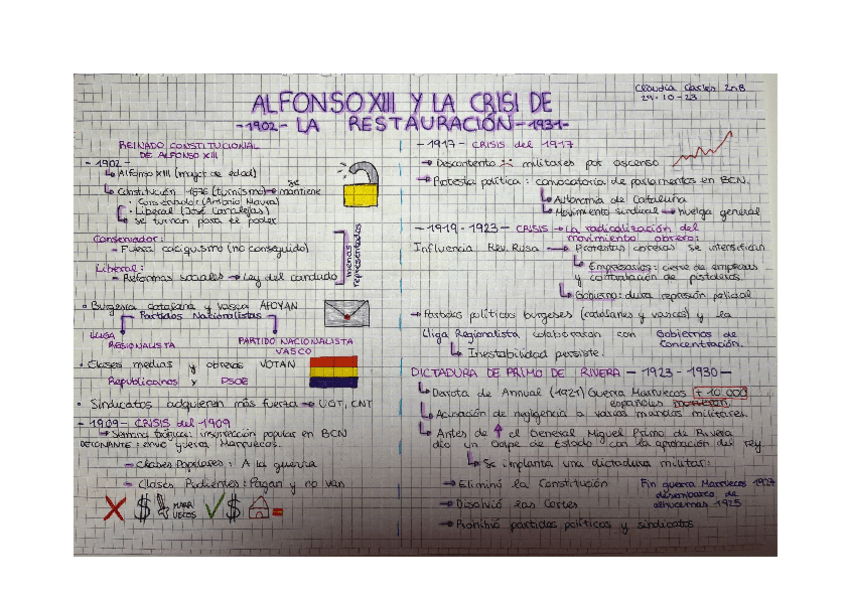 Claudia Carles 2nB
29-10-23
ALFONSO XIII Y LA CRISI DE
-1902- LA RESTAURACIÓN -1931-
REINADO CONSTITUCIONAL
DE ALFONSO XIII
- 1902 -
Alfonso XIII (major de edad)
Constitución 1876 (turnismo) → se mantiene
• Conservador: (Antonio Maura)
• Liberal (José Canalejas)
se turnan para el poder
Conservador:
- Fuera caciquismo (no conseguido)
Liberal:
- Reformas sociales → Ley del candado
menos representados
• Burgesia catalana y vasca APOYAN
Partidos Nacionalistas
LLIGA
REGIONALISTA
PARTIDO NACIONALISTA
VASCO
• Clases medias y obreras VOTAN
Republicanos y PSOE
• Sindicatos adquieren más fuerza → UGT, CNT
- 1909 - CRISIS del 1909
Semana trágica: insurrección popular en BCN
DETONANTE: guerra Marruecos.
- Clases Populares: A la guerra
- Clases Pudientes: Pagan y no van
MARRUECOS
- 1917 - CRISIS del 1917
→ Descontento militares por ascenso
→ Protesta política: convocatoria de parlamentos en BCN.
Autonomía de Cataluña
Movimiento sindical → huelga general
- 1919 - 1923 - CRISIS → La radicalización del
movimiento obrero:
Influencia Rev. Rusa → Protestas obreras se intensifican
Empresarios: cierre de empresas
y contratación de pistoleros
Gobierno: dura represión policial
→ Partidos políticos burgeses (catalanes y vascos) y la
Lliga Regionalista colaboraron con Gobiernos de
Concentración.
Inestabilidad persiste.
DICTADURA DE PRIMO DE RIVERA - 1923 - 1930 -
Derrota de Annual (1921) Guerra Marruecos + 10 000
españoles murieron.
Acusación de negligencia a varios mandos militares.
Antes de ↑ el General Miguel Primo de Rivera
dio un Golpe de Estado con la aprobación del rey
Se implanta una dictadura militar:
→ Eliminó la Constitución
→ Disolvió las Cortes
→ Prohibió partidos políticos y sindicatos
Fin guerra Marruecos 1927
desembarco de
alhucemas 1925